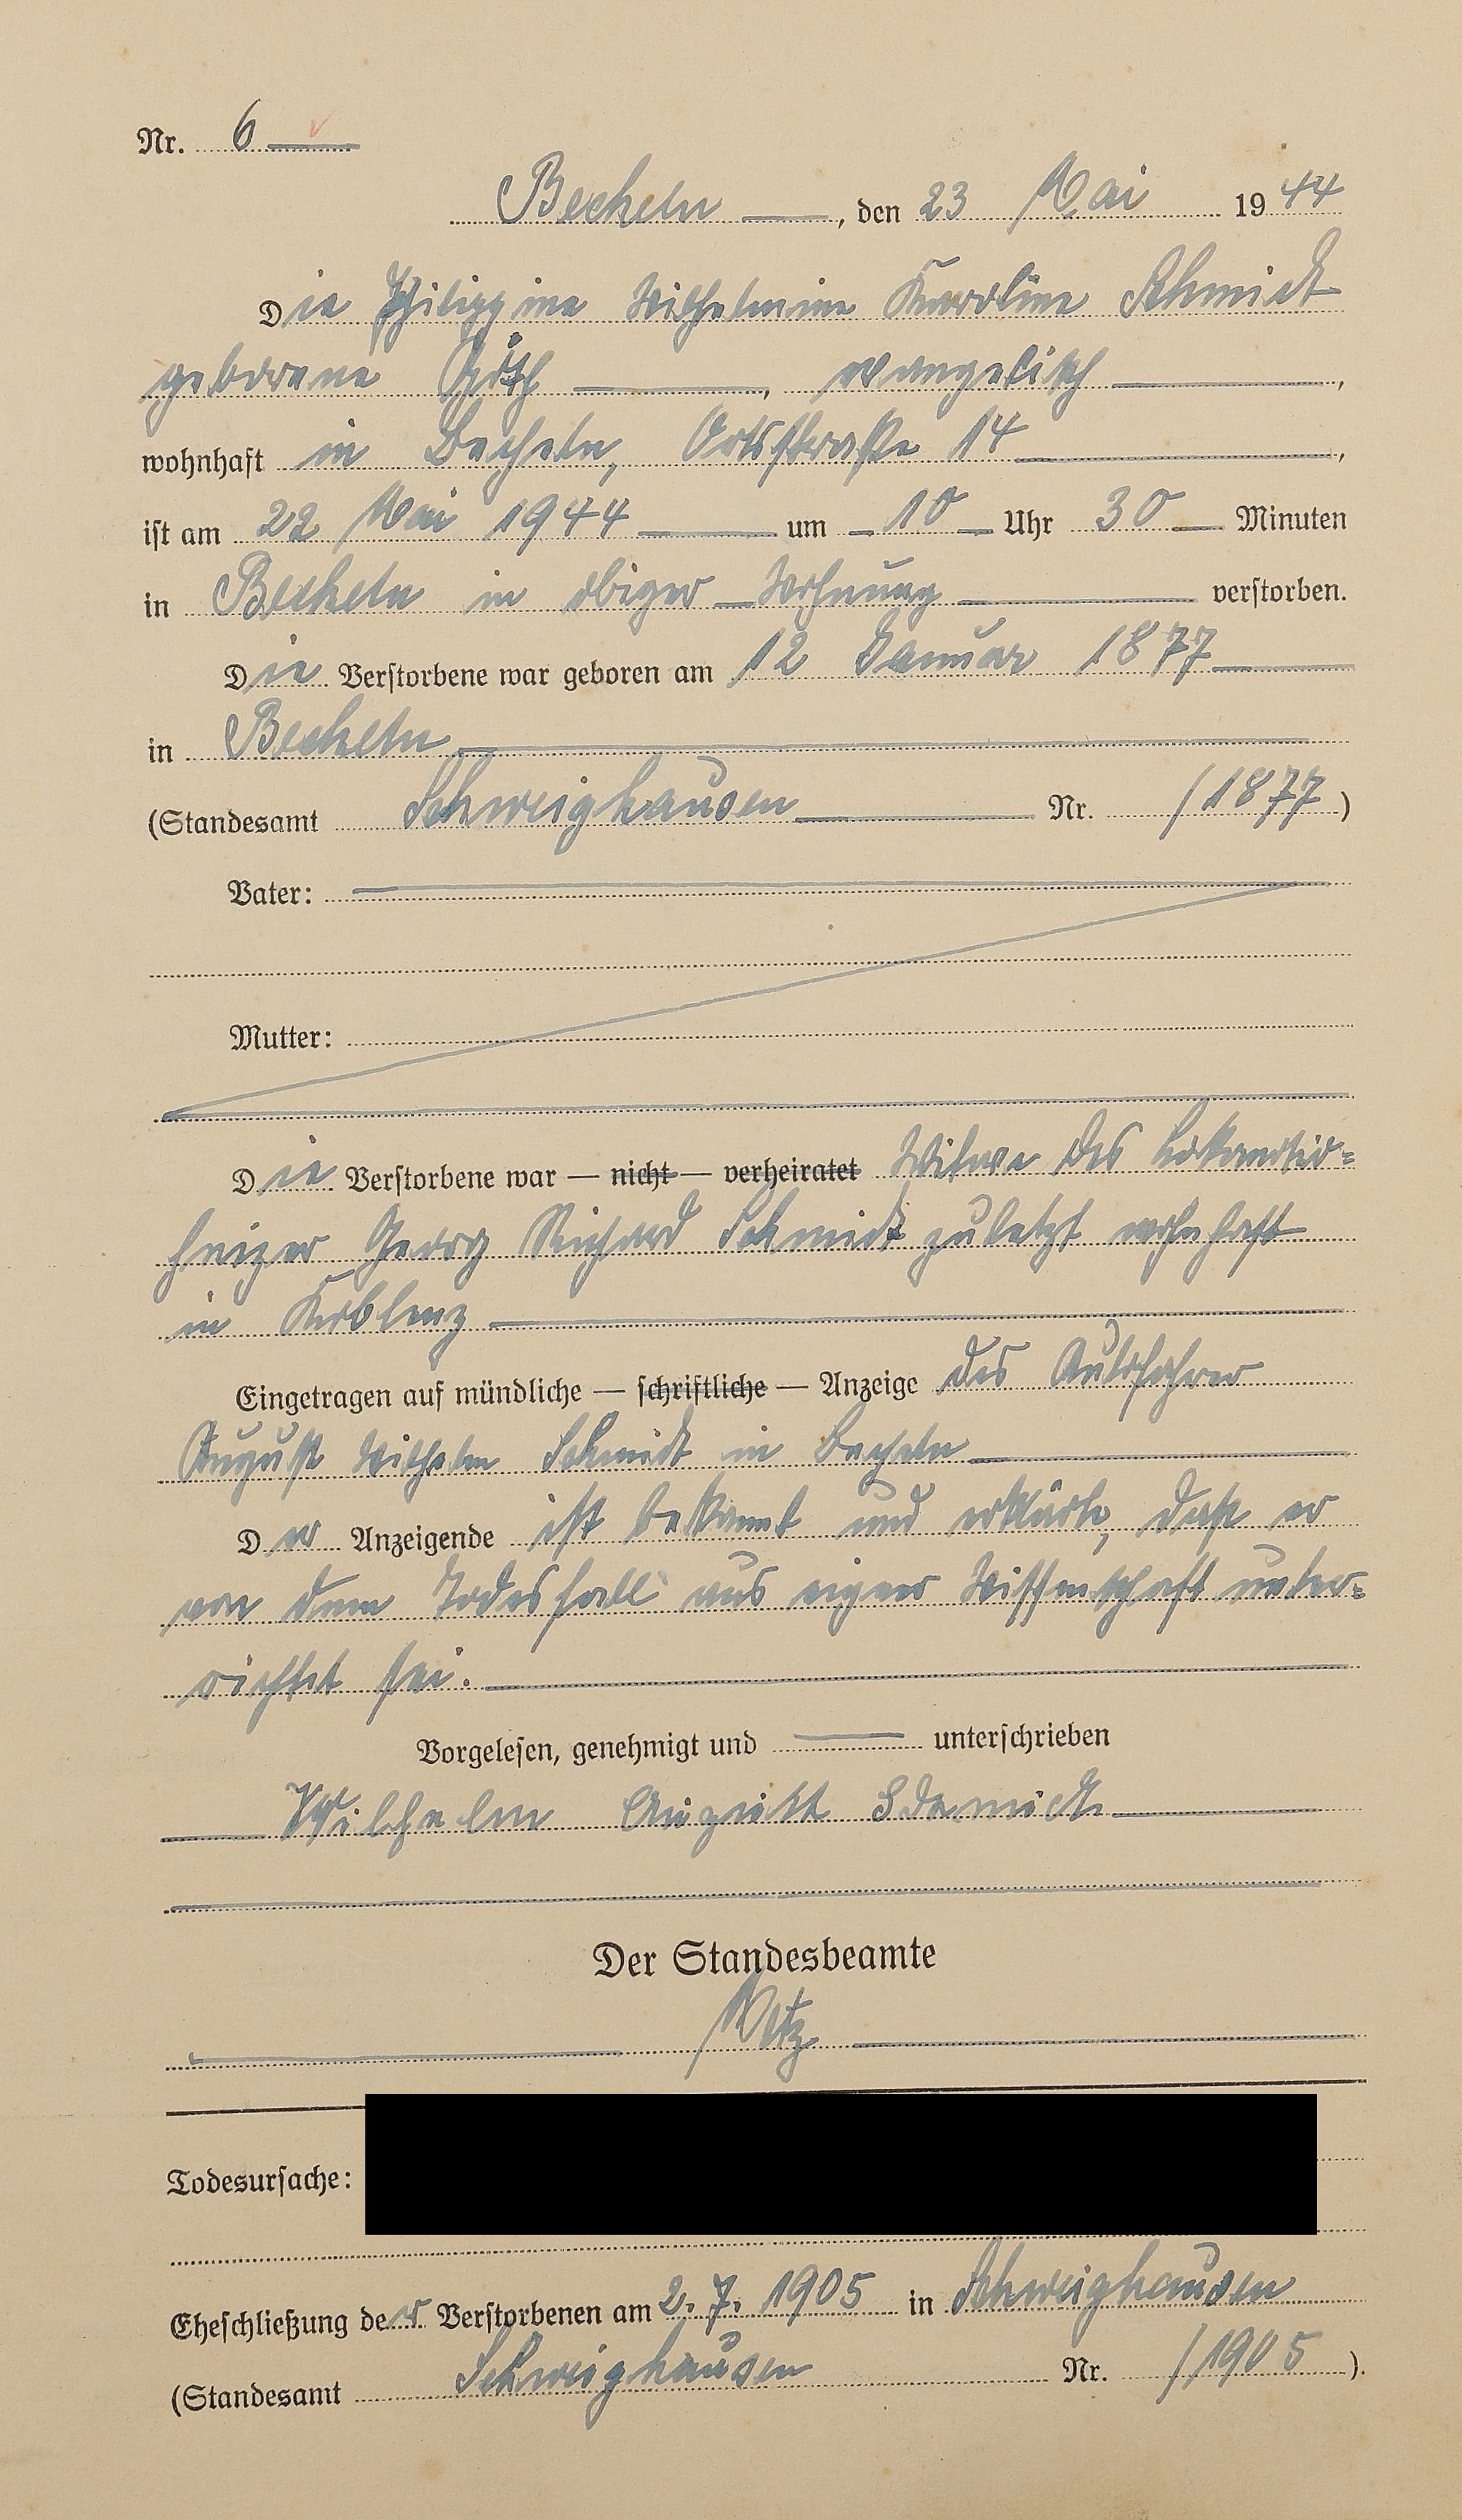 Nr. 6
Becheln, den 23 Mai 1944
Die Philippine Wilhelmine Karoline Schmidt
geborene, evangelisch,
wohnhaft in Becheln, Ortsstraße 14,
ist am 22 Mai 1944 um 10 Uhr 30 Minuten
in Becheln in obiger Wohnung verstorben.
Die Verstorbene war geboren am 12 Januar 1877
in Becheln
(Standesamt Schweighausen Nr. /1877)
Vater:
Mutter:
Die Verstorbene war — nicht — verheiratet Witwe des Lokomotiv-
heizer Georg Richard Schmidt zuletzt wohnhaft
in Koblenz
Eingetragen auf mündliche — schriftliche — Anzeige des Autofahrer
August Wilhelm Schmidt in Becheln
Der Anzeigende ist bekannt und erklärte, daß er
von dem Todesfall aus eigner Wissenschaft unter-
richtet sei.
Vorgelesen, genehmigt und unterschrieben
Wilhelm August Schmidt
Der Standesbeamte
Todesursache:
Eheschließung der Verstorbenen am 2. 7. 1905 in Schweighausen
(Standesamt Schweighausen Nr. /1905).